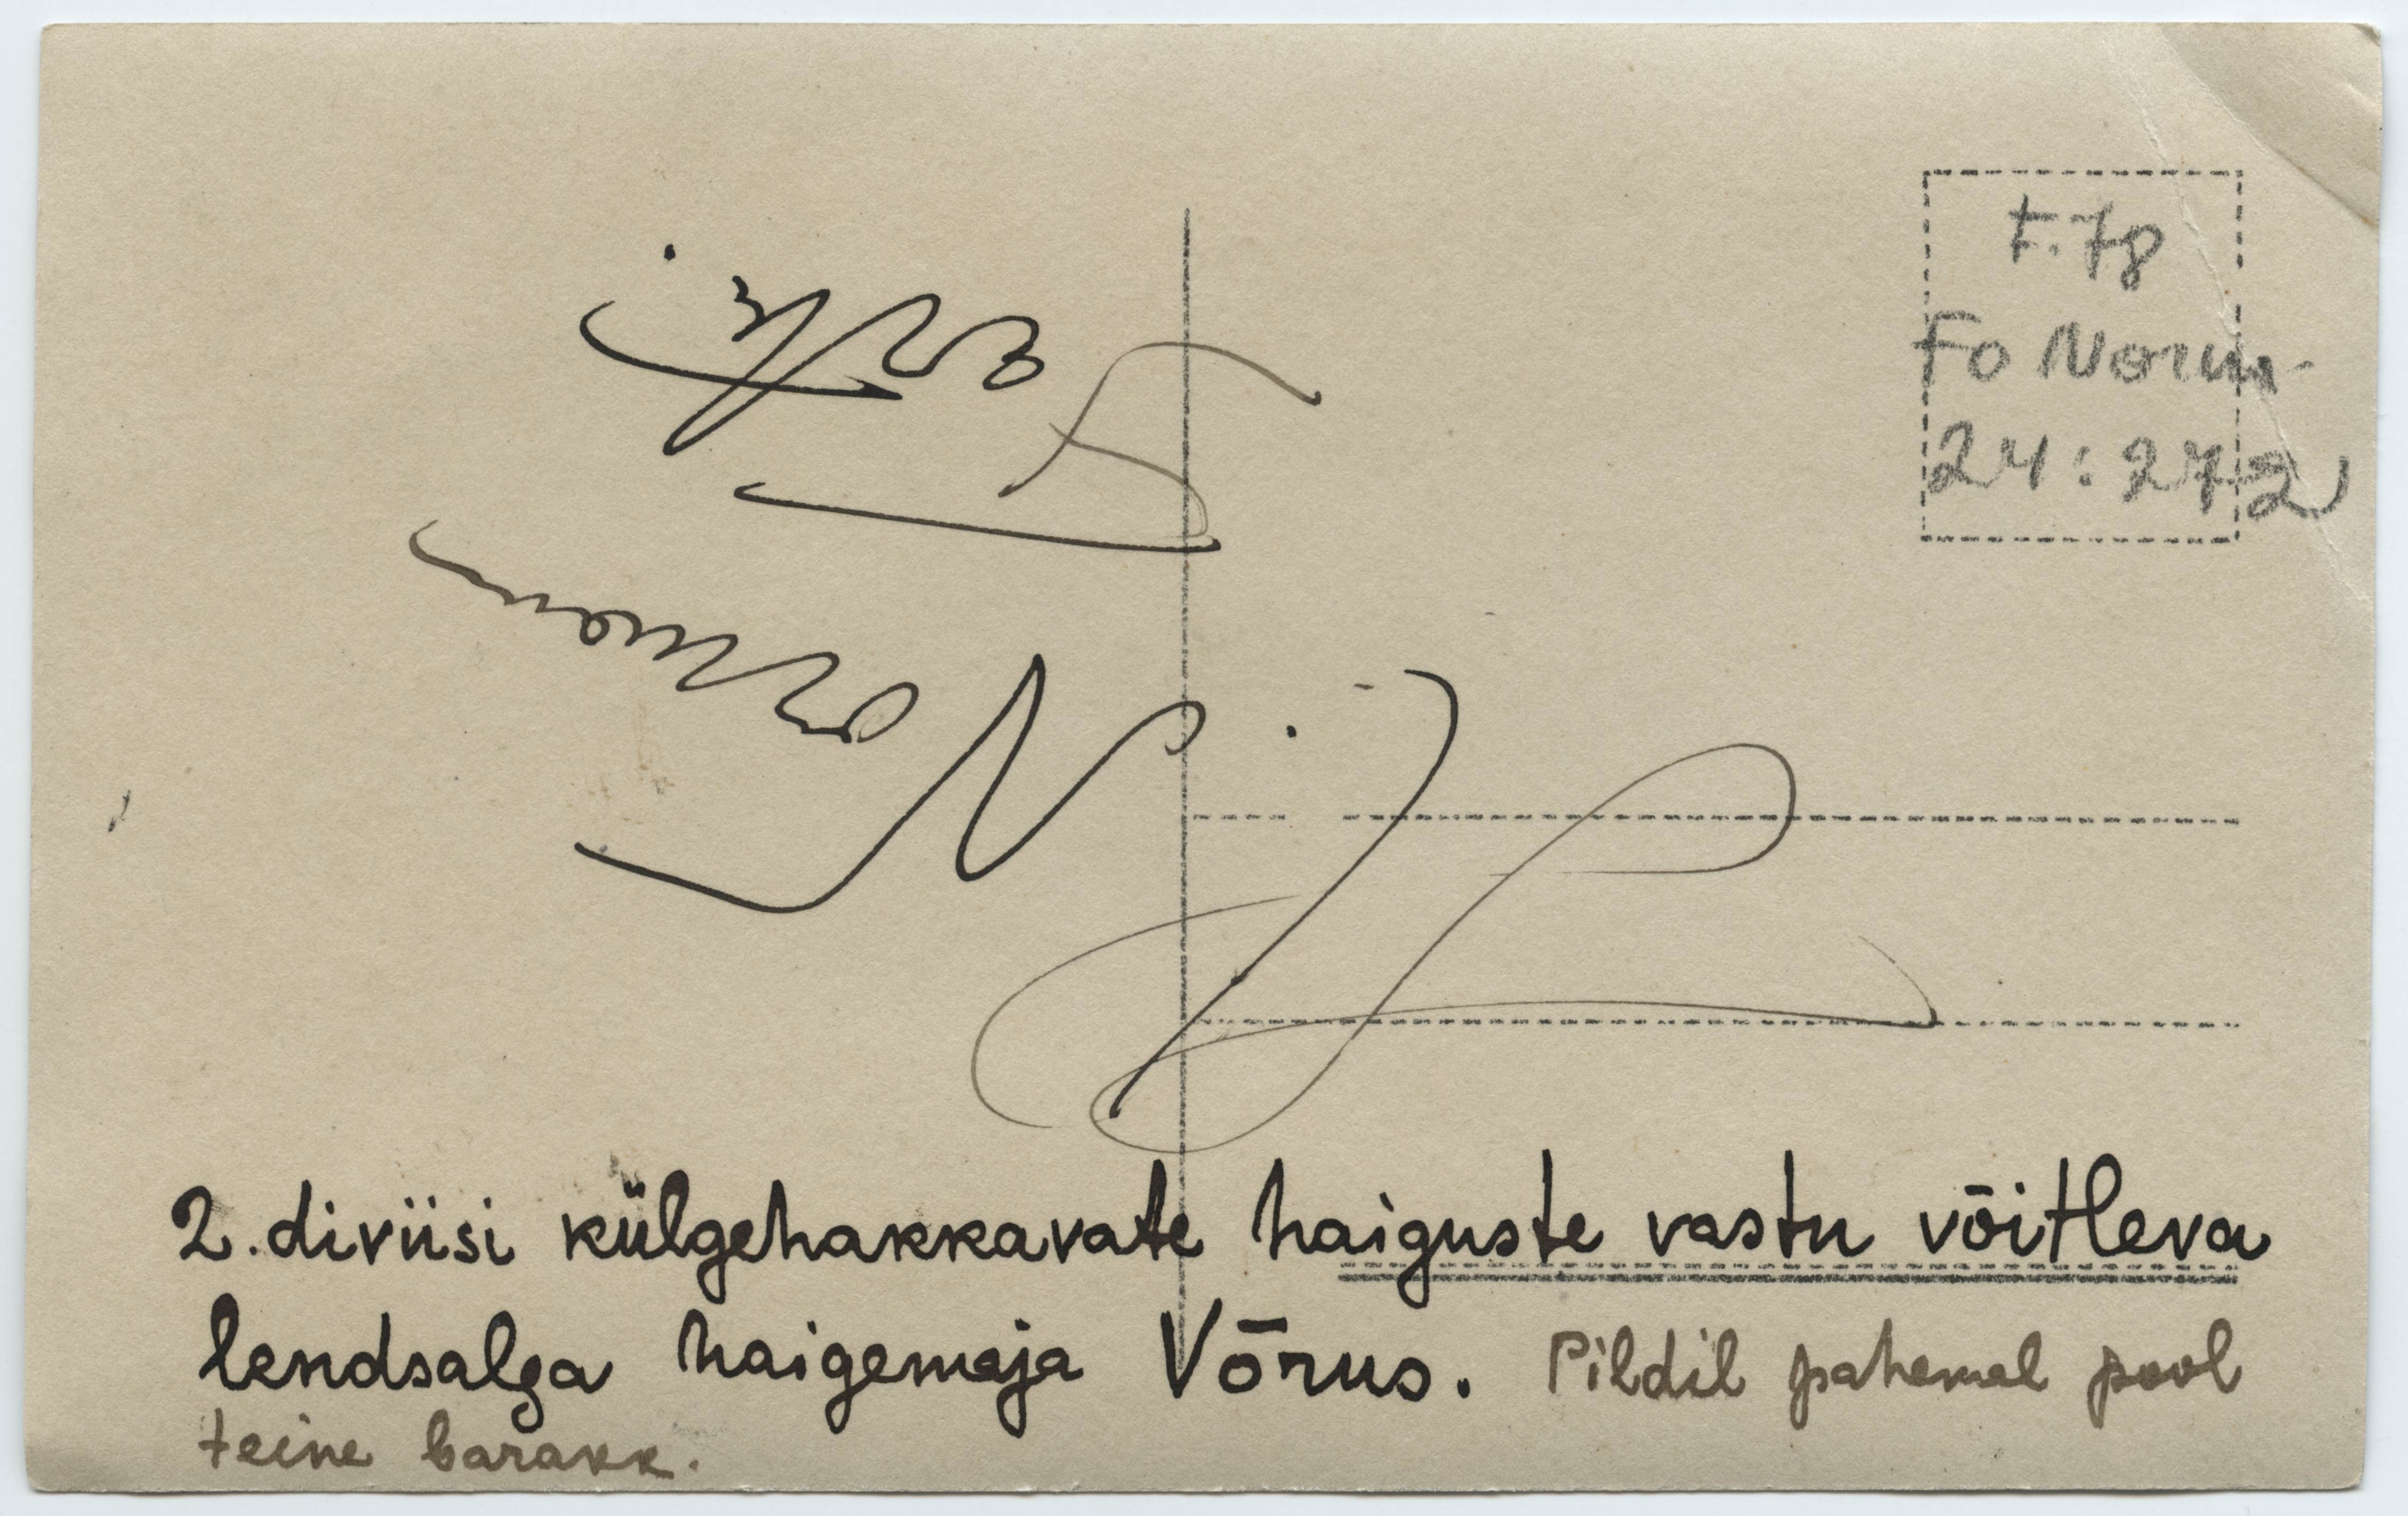 F. 78
Fo Norm-
24:272
J. Normann
2. diviisi külgehakkavate haiguste vastu võitleva
lendsalga haigemaja Võrus. Pildil pahemal pool
teine barakk.